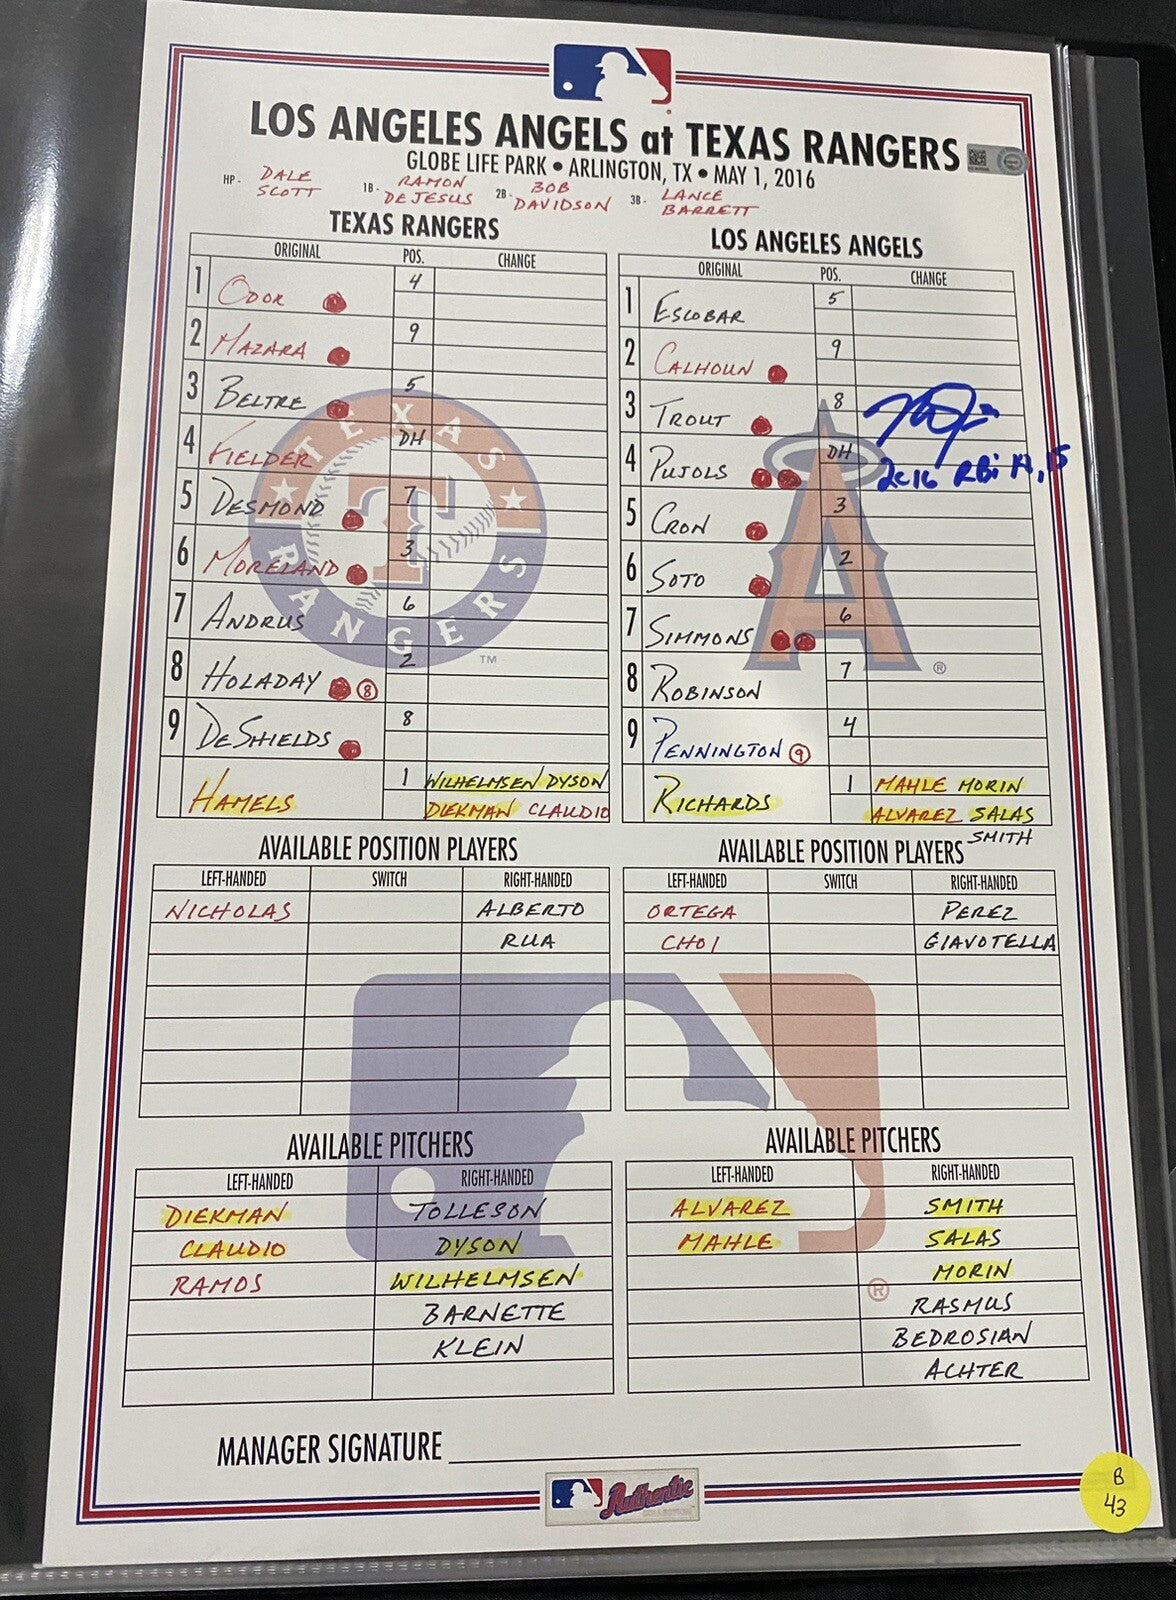 LOS ANGELES ANGELS at TEXAS RANGERS
GLOBE LIFE PARK • ARLINGTON, TX • MAY 1, 2016
HP - DALE SCOTT 1B - RAMON DEJESUS 2B - BOB DAVIDSON 3B - LANCE BARRETT
TEXAS RANGERS
ORIGINAL POS. CHANGE
1 ODOR 4
2 MAZARA 9
3 BELTRE 5
4 FIELDER DH
5 DESMOND 7
6 MORELAND 3
7 ANDRUS 6
8 HOLADAY 8 2
9 DESHIELDS 8
HAMELS 1 WILHELMSEN DYSON
DIEKMAN CLAUDIO
LOS ANGELES ANGELS
ORIGINAL POS. CHANGE
1 ESCOBAR 5
2 CALHOUN 9
3 TROUT 8
4 PUJOLS DH
2016 RBI 14, 15
5 CRON 3
6 SOTO 2
7 SIMMONS 6
8 ROBINSON 7
9 PENNINGTON 9 4
RICHARDS 1 MAHLE MORIN
ALVAREZ SALAS
SMITH
TEXAS
T
RANGERS
TM
A
®
AVAILABLE POSITION PLAYERS
LEFT-HANDED SWITCH RIGHT-HANDED
NICHOLAS ALBERTO
RUA
AVAILABLE POSITION PLAYERS
LEFT-HANDED SWITCH RIGHT-HANDED
ORTEGA PEREZ
CHOI GIAVOTELLA
AVAILABLE PITCHERS
LEFT-HANDED RIGHT-HANDED
DIEKMAN TOLLESON
CLAUDIO DYSON
RAMOS WILHELMSEN
BARNETTE
KLEIN
AVAILABLE PITCHERS
LEFT-HANDED RIGHT-HANDED
ALVAREZ SMITH
MAHLE SALAS
MORIN
® RASMUS
BEDROSIAN
ACHTER
MANAGER SIGNATURE
Authentic
B
43